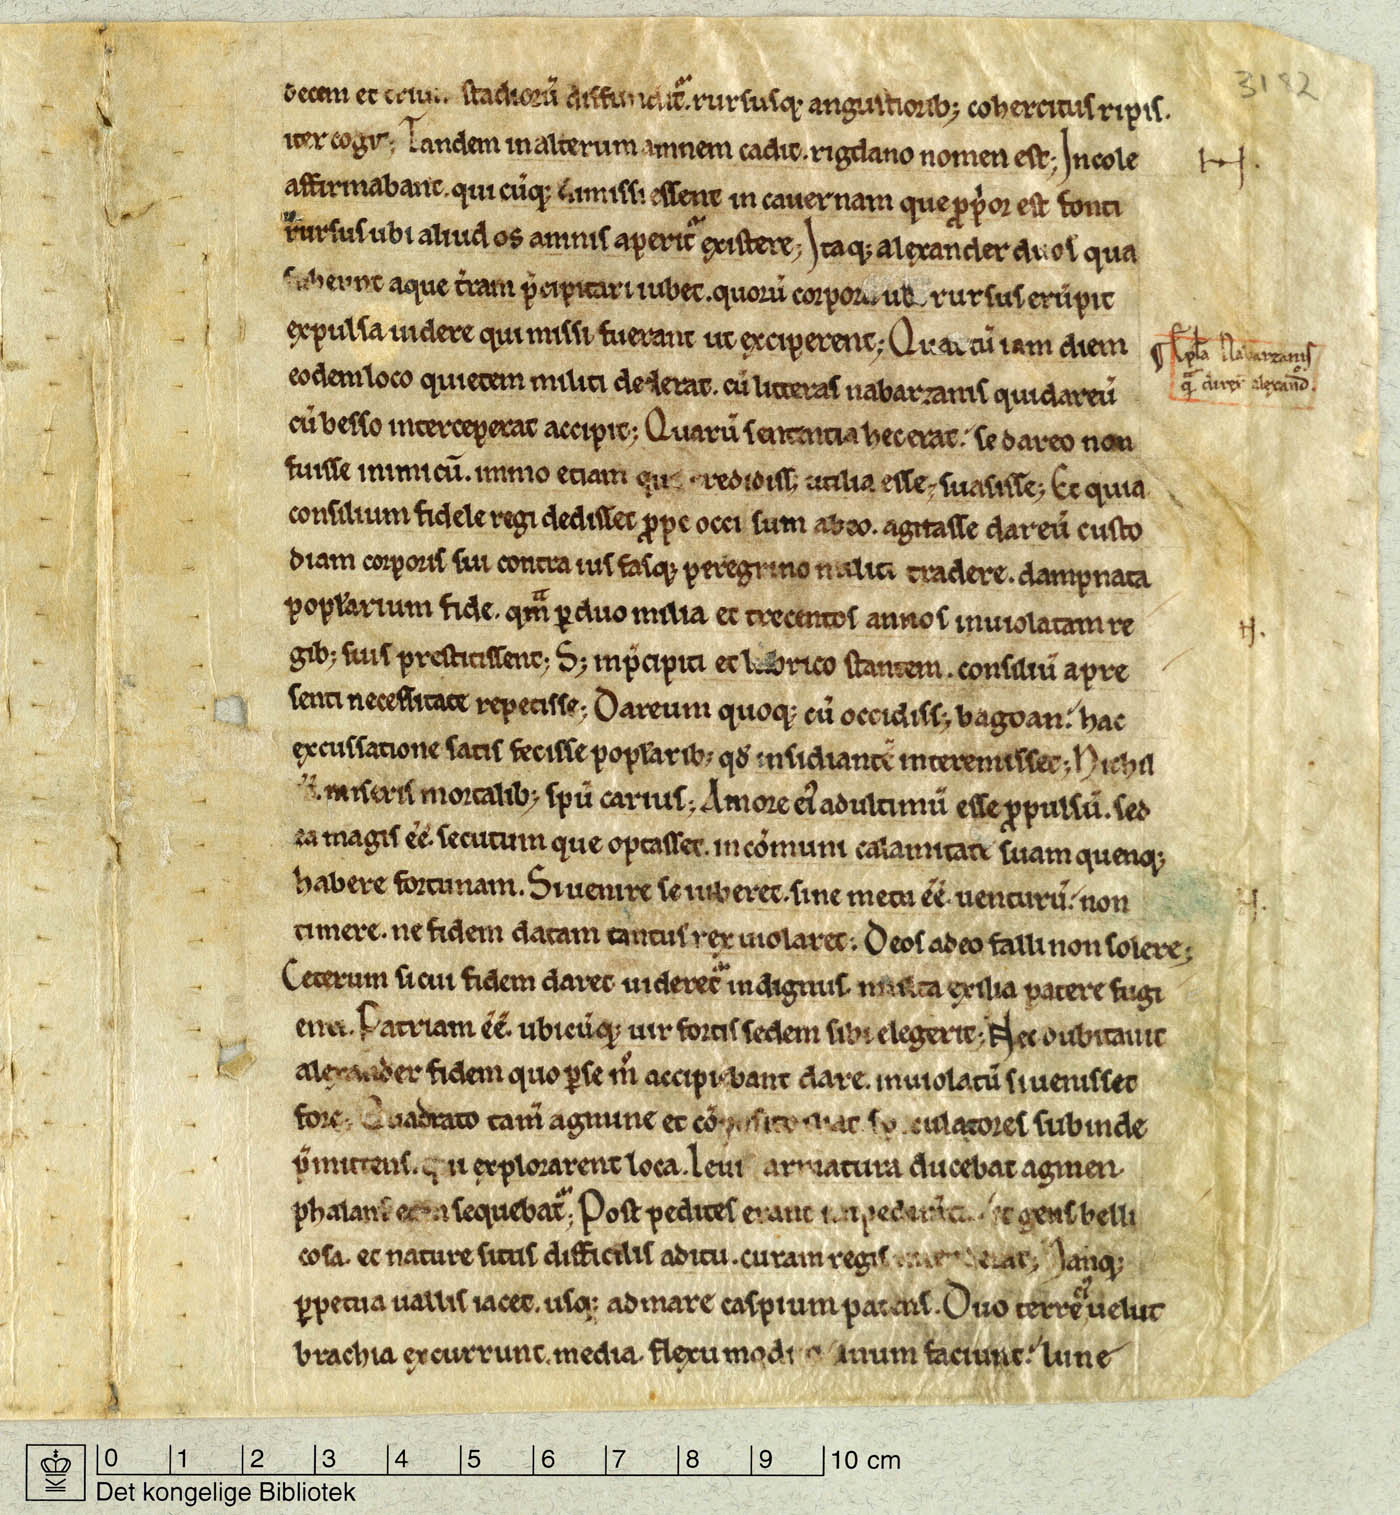 3182
decem et stadiorū diffundit᷑. rursusq; angustiorib; cohercitus ripis.
iter cogit᷑; Tandem in alterum amnem cadit. rigdano nomen est; Incole
affirmabant. qui cūq; dimissi essent in cauernam que ꝓp̄or est fonti
rursus ubi aliud os amnis aperit᷑ existere; Itaq; alexander duos qua
subeunt aque t̄ram p̄cipitari iubet. quorū corpora ubi rursus erūpit
expulsa uidere qui missi fuerant ut exciperent; Quartū iam diem
eodem loco quietem militi dederat. cū litteras nabarzanis qui dareū
cū besso interceperat accipit; Quarū sententia hec erat. se dareo non
fuisse inimicū. immo etiam que credidiss; utilia esse, suasisse; Et quia
consilium fidele regi dedisset ꝓpe occisum ab eo. agitasse dareū custo
diam corporis sui contra ius fasq; peregrino militi tradere. dampnata
popl̄arium fide. qm̄ ꝑ duo milia et trecentos annos inuiolatam re
gib; suis prestitissent; S; in p̄cipiti et lubrico stantem. consiliū a pre
senti necessitate repetisse; Dareum quoq; cū occidiss; bagoan. hac
excussatione satis fecisse popl̄arib; qd̄ insidiantē interemisset; Nichil
miseris mortalib; spū carius; Amore ei᷑ ad ultimū esse ꝓpulsū. sed
ea magis ēē. secutum que optasset. in cōmuni calamitate suam quenq;
habere fortunam. Si uenire se iuberet. sine metu ēē. uenturū. non
timere. ne fidem datam tantus rex uiolaret. Deos a deo falli non solere;
Ceterum si cui fidem daret uideret᷑ indignus. multa exilia patere fugi
enti. Patriam ēē. ubicūq; uir fortis sedem sibi elegerit; Nec dubitauit
alexander fidem quo ꝑse m̄ accipiebant dare. inuiolatū si uenisset
fore; Quadrato tam̄ agmine et cōposito ibat speculatores subinde
p̄mittens. qui explorarent loca. Leuis armatura ducebat agmen.
phalanx eam sequebat᷑; Post pedites erant impedimenta. Et gens belli
cosa. et nature situs difficilis aditu. curam regis intenderat; Nanq;
ꝑpetua uallis iacet. usq; ad mare caspium patens. Duo terre ei᷑ uelut
brachia excurrunt. media flexu modico sinum faciunt. lune
H.
¶ Epl̄a Nabarzanis
q̄ direx̄ alexandō.
H.
H.
0 1 2 3 4 5 6 7 8 9 10 cm
Det kongelige Bibliotek